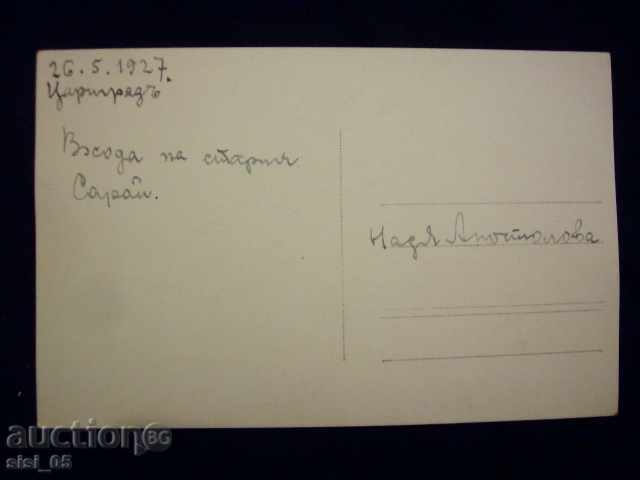 26.5.1927.
Цариградъ
Входа на стария
Сарай.
Надя Апостолова
auctionBG
sisi_05